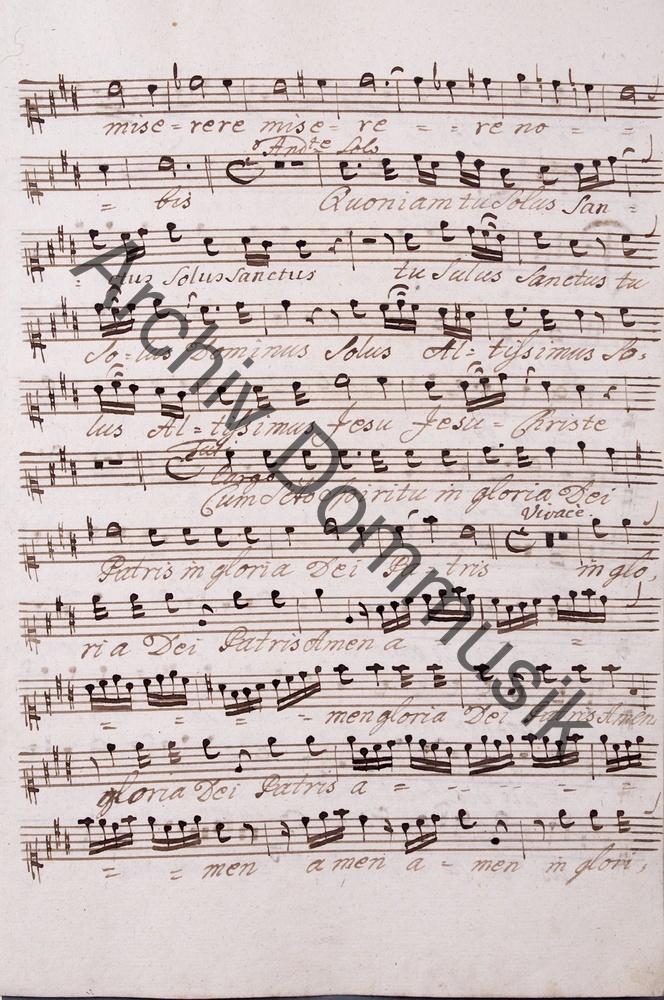 mise = rere mise = re = = re no = =
Andte Solo
= bis Quoniam tu Solus San =
= ctus Solus Sanctus tu Solus Sanctus tu
So = lus Dominus Solus Al = tissimus So =
lus Al = tissimus Jesu Jesu = Christe
Largo
Cum Sancto Spiritu in gloria Dei
Vivace.
Patris in gloria Dei Pa = tris in glo,
ria Dei Patris Amen a =
= = = - men gloria Dei Patris Amen
gloria Dei Patris a = - - - = =
= = men amen a = men in glori,
Archiv Dommusik